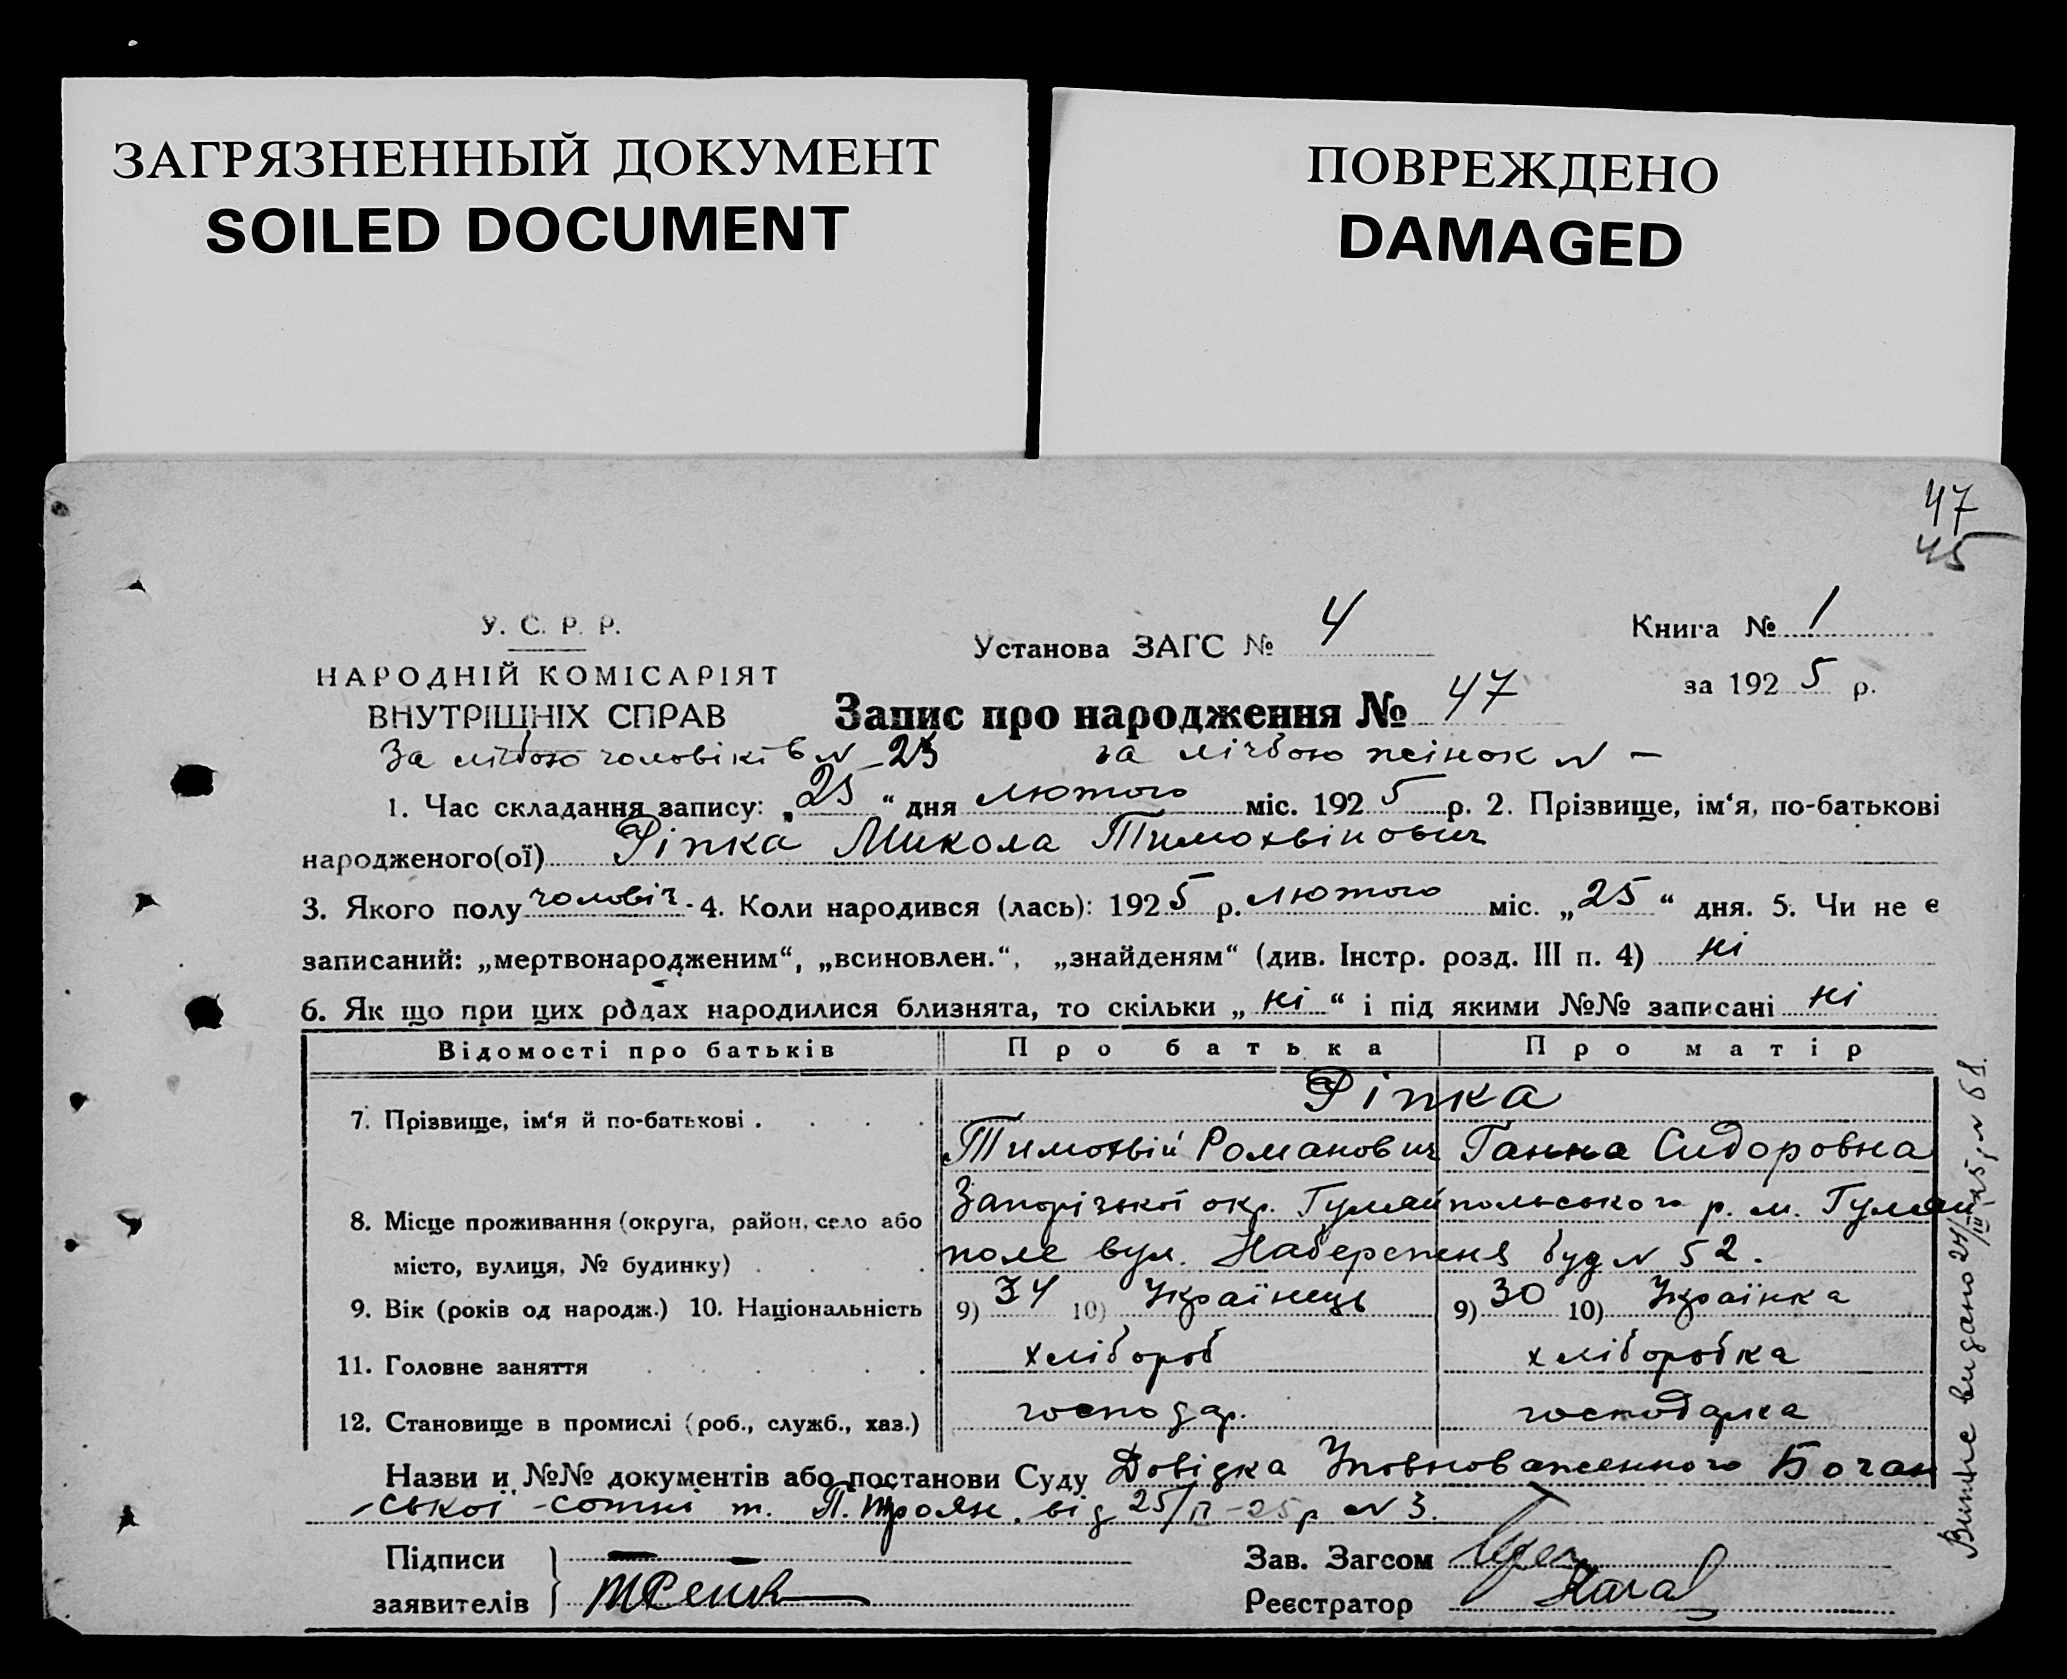 ЗАГРЯЗНЕННЫЙ ДОКУМЕНТ
SOILED DOCUMENT
ПОВРЕЖДЕНО
DAMAGED
47
45
У. С. Р. Р.
НАРОДНІЙ КОМІСАРІЯТ
ВНУТРІШНІХ СПРАВ
Установа ЗАГС № 4
Книга № 1
за 1925 р.
Запис про народження № 47
За лічбою чоловіків № 23 за лічбою жінок № —
1. Час складання запису: „25“ дня лютого міс. 1925 р. 2. Прізвище, ім‘я, по-батькові
народженого(ої) Ріпка Микола Тимохвійович
3. Якого полу чоловіч. 4. Коли народився (лась): 1925 р. лютого міс. „25“ дня. 5. Чи не є
записаний: „мертвонародженим“, „всиновлен.“, „знайденям“ (див. Інстр. розд. III п. 4) ні
6. Як що при цих родах народилися близнята, то скільки „ні“ і під якими №№ записані ні
Відомості про батьків Про батька Про матір
Ріпка
7. Прізвище, ім‘я й по-батькові . . . . Тимохвій Романович Ганна Сидоровна
8. Місце проживання (округа, район, село або Запорізької окр. Гуляйпольського р. м. Гуляй
місто, вулиця, № будинку) . . . . поле вул. Набережня буд № 52.
9. Вік (років од народж.) 10. Національність 9) 34 10) Українець 9) 30 10) Українка
11. Головне заняття . . . . хлібороб хліборобка
12. Становище в промислі (роб., служб., хаз.) господар. господарка
Назви и №№ документів або постанови Суду Довідка Уповноваженного Бочан
-ської сотні т. П. Троян. від 25/II-25р № 3.
Підписи
заявителів
Зав. Загсом
Реєстратор
Виписе видано 24/III 25; № 68.